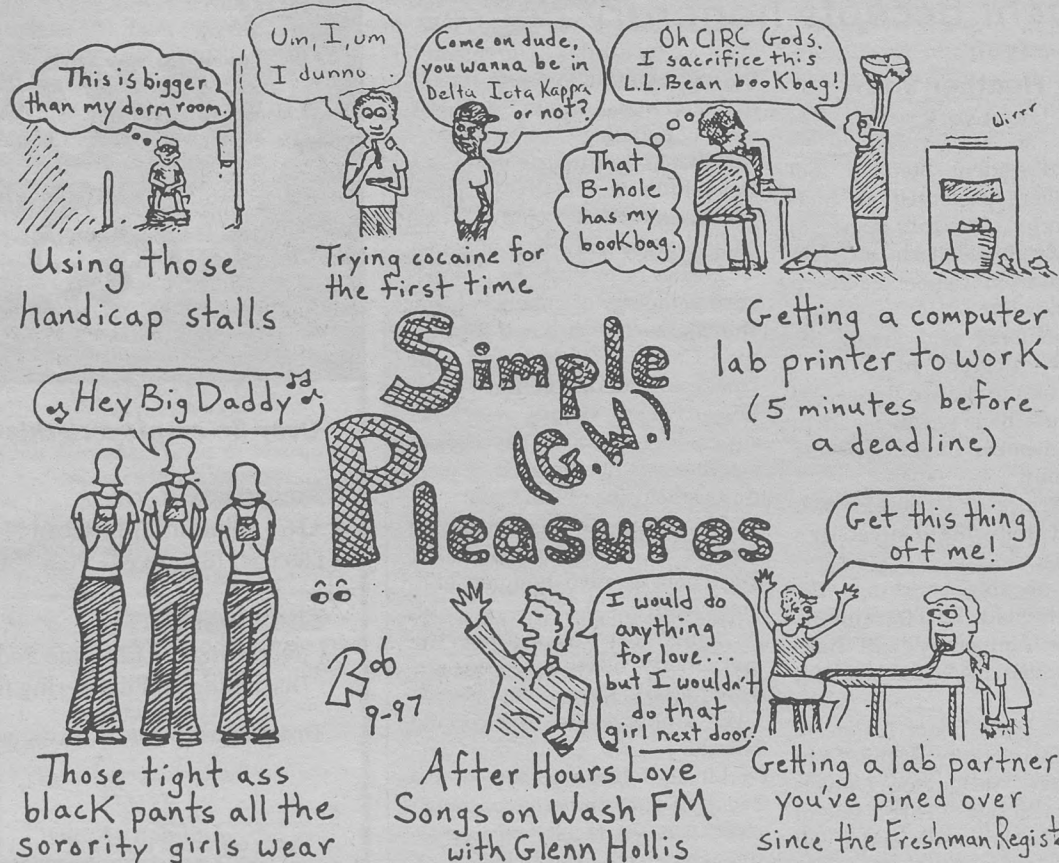 This is bigger
than my dorm room.
Using those
handicap stalls
Um, I, um
I dunno...
Come on dude,
you wanna be in
Delta Iota Kappa
or not?
Trying cocaine for
the first time
Oh CIRC Gods.
I sacrifice this
L.L. Bean bookbag!
That
B-hole
has my
bookbag.
Wirrr
Getting a computer
lab printer to work
(5 minutes before
a deadline)
Simple
(G.W.)
Pleasures
Hey Big Daddy
Those tight ass
black pants all the
sorority girls wear
Rob
9-97
I would do
anything
for love...
but I wouldn't
do that
girl next door.
After Hours Love
Songs on Wash FM
with Glenn Hollis
Get this thing
off me!
Getting a lab partner
you've pined over
since the Freshman Regist